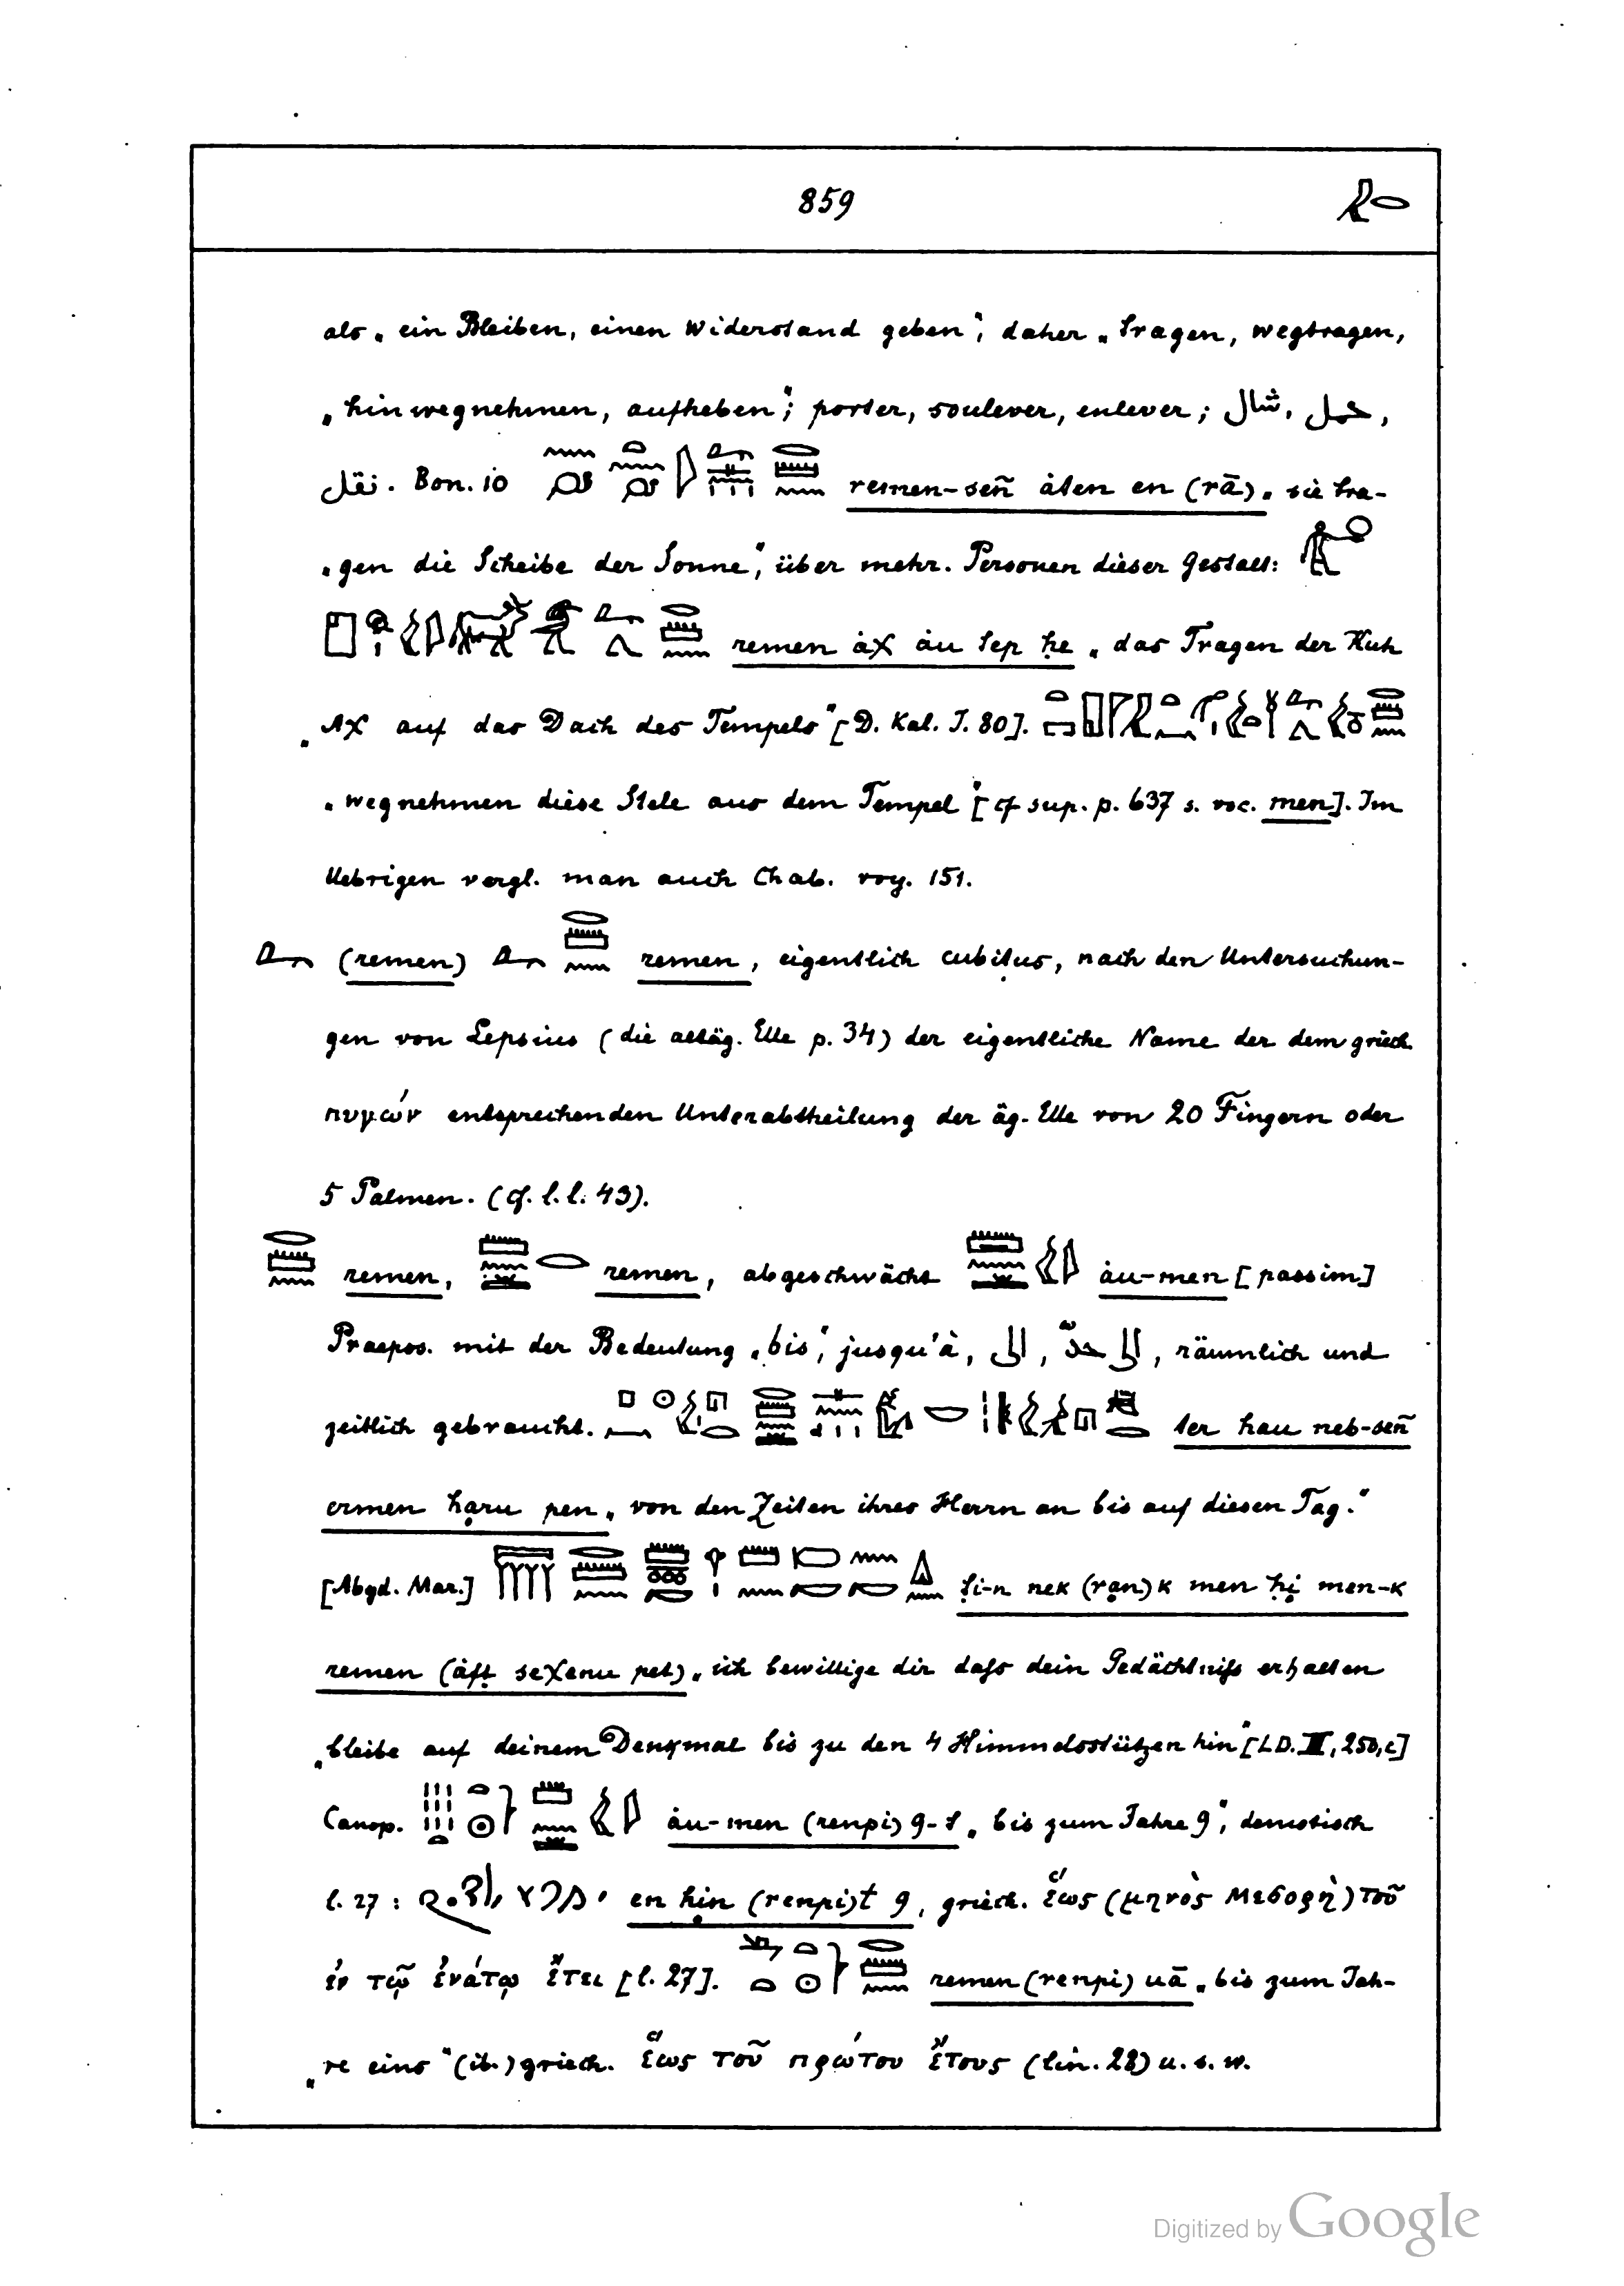 859
als „ein Bleiben, einen Widerstand geben“; daher „tragen, wegtragen,
„hinwegnehmen, aufheben“; porter, soulever, enlever; شال, حمل,
نقل. Bon. 10 remen-señ åten en (rā) „sie tra-
„gen die Scheibe der Sonne“, über mehr. Personen dieser Gestalt:
remen åχ åu tep ḥe „das Tragen der Kuh
„Aχ auf das Dach des Tempels“ [D. Kal. I. 80].
„wegnehmen diese Stele aus dem Tempel“ [cf sup. p. 637 s. voc. men]. Im
Uebrigen vergl. man auch Chab. voy. 151.
(remen) remen, eigentlich cubitus, nach den Untersuchun-
gen von Lepsius (die altäg. Elle p. 34) der eigentliche Name der dem griech.
πυγών entsprechenden Unterabtheilung der äg. Elle von 20 Fingern oder
5 Palmen. (cf. l. l. 43).
remen, remen, abgeschwächt åu-men [passim]
Praepos. mit der Bedeutung „bis“, jusqu'à, الى, الى حدّ, räumlich und
zeitlich gebraucht. ter hau neb-señ
ermen haru pen „von den Zeiten ihres Herrn an bis auf diesen Tag.“
[Abyd. Mar.] ṭi-n nek (ran)k men ḥi men-k
remen (åfṭ seχenu pet) „ich bewillige dir daſs dein Gedächtniſs erhalten
„bleibe auf deinem Denkmal bis zu den 4 Himmelsstützen hin“ [LD. III, 250, c]
Canop. åu-men (renpi) 9-t „bis zum Jahre 9“, demotisch
l. 27: en hin (renpi)t 9, griech. ἕως (μηνὸς Μεσορὴ) τοῦ
ἐν τῷ ἐνάτῳ ἔτει [l. 27]. remen (renpi) uā „bis zum Jah-
„re eins“ (ib.) griech. ἕως τοῦ πρώτου ἔτους (lin. 28) u. s. w.
Digitized by Google